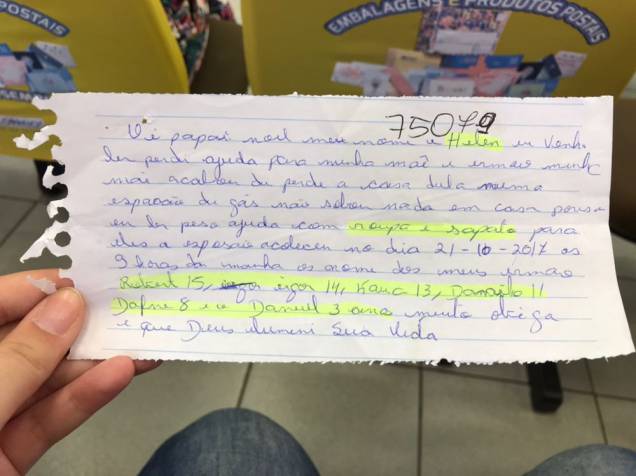 POSTAIS
EMBALAGENS E PRODUTOS POSTAIS
75079
Oi papai noil meu nome e Helen eu venho
ler pendi ajuda para minha maẽ e irmãos minha
mai acabou de perde a casa dela numa
espasaõ du gás naõ sobou nada em casa
eu ler peso ajuda com roupa e sapato para
eles a esposaõ acotecen no dia 21-10-2017 as
9 horas da manha os nome dos meus irmaos
Robert 15, igor 14, Kauc 13, Danailo 11
Dafne 8 e o Daniel 3 anos muinto obriga
e que Deus ilumini Sua Vida